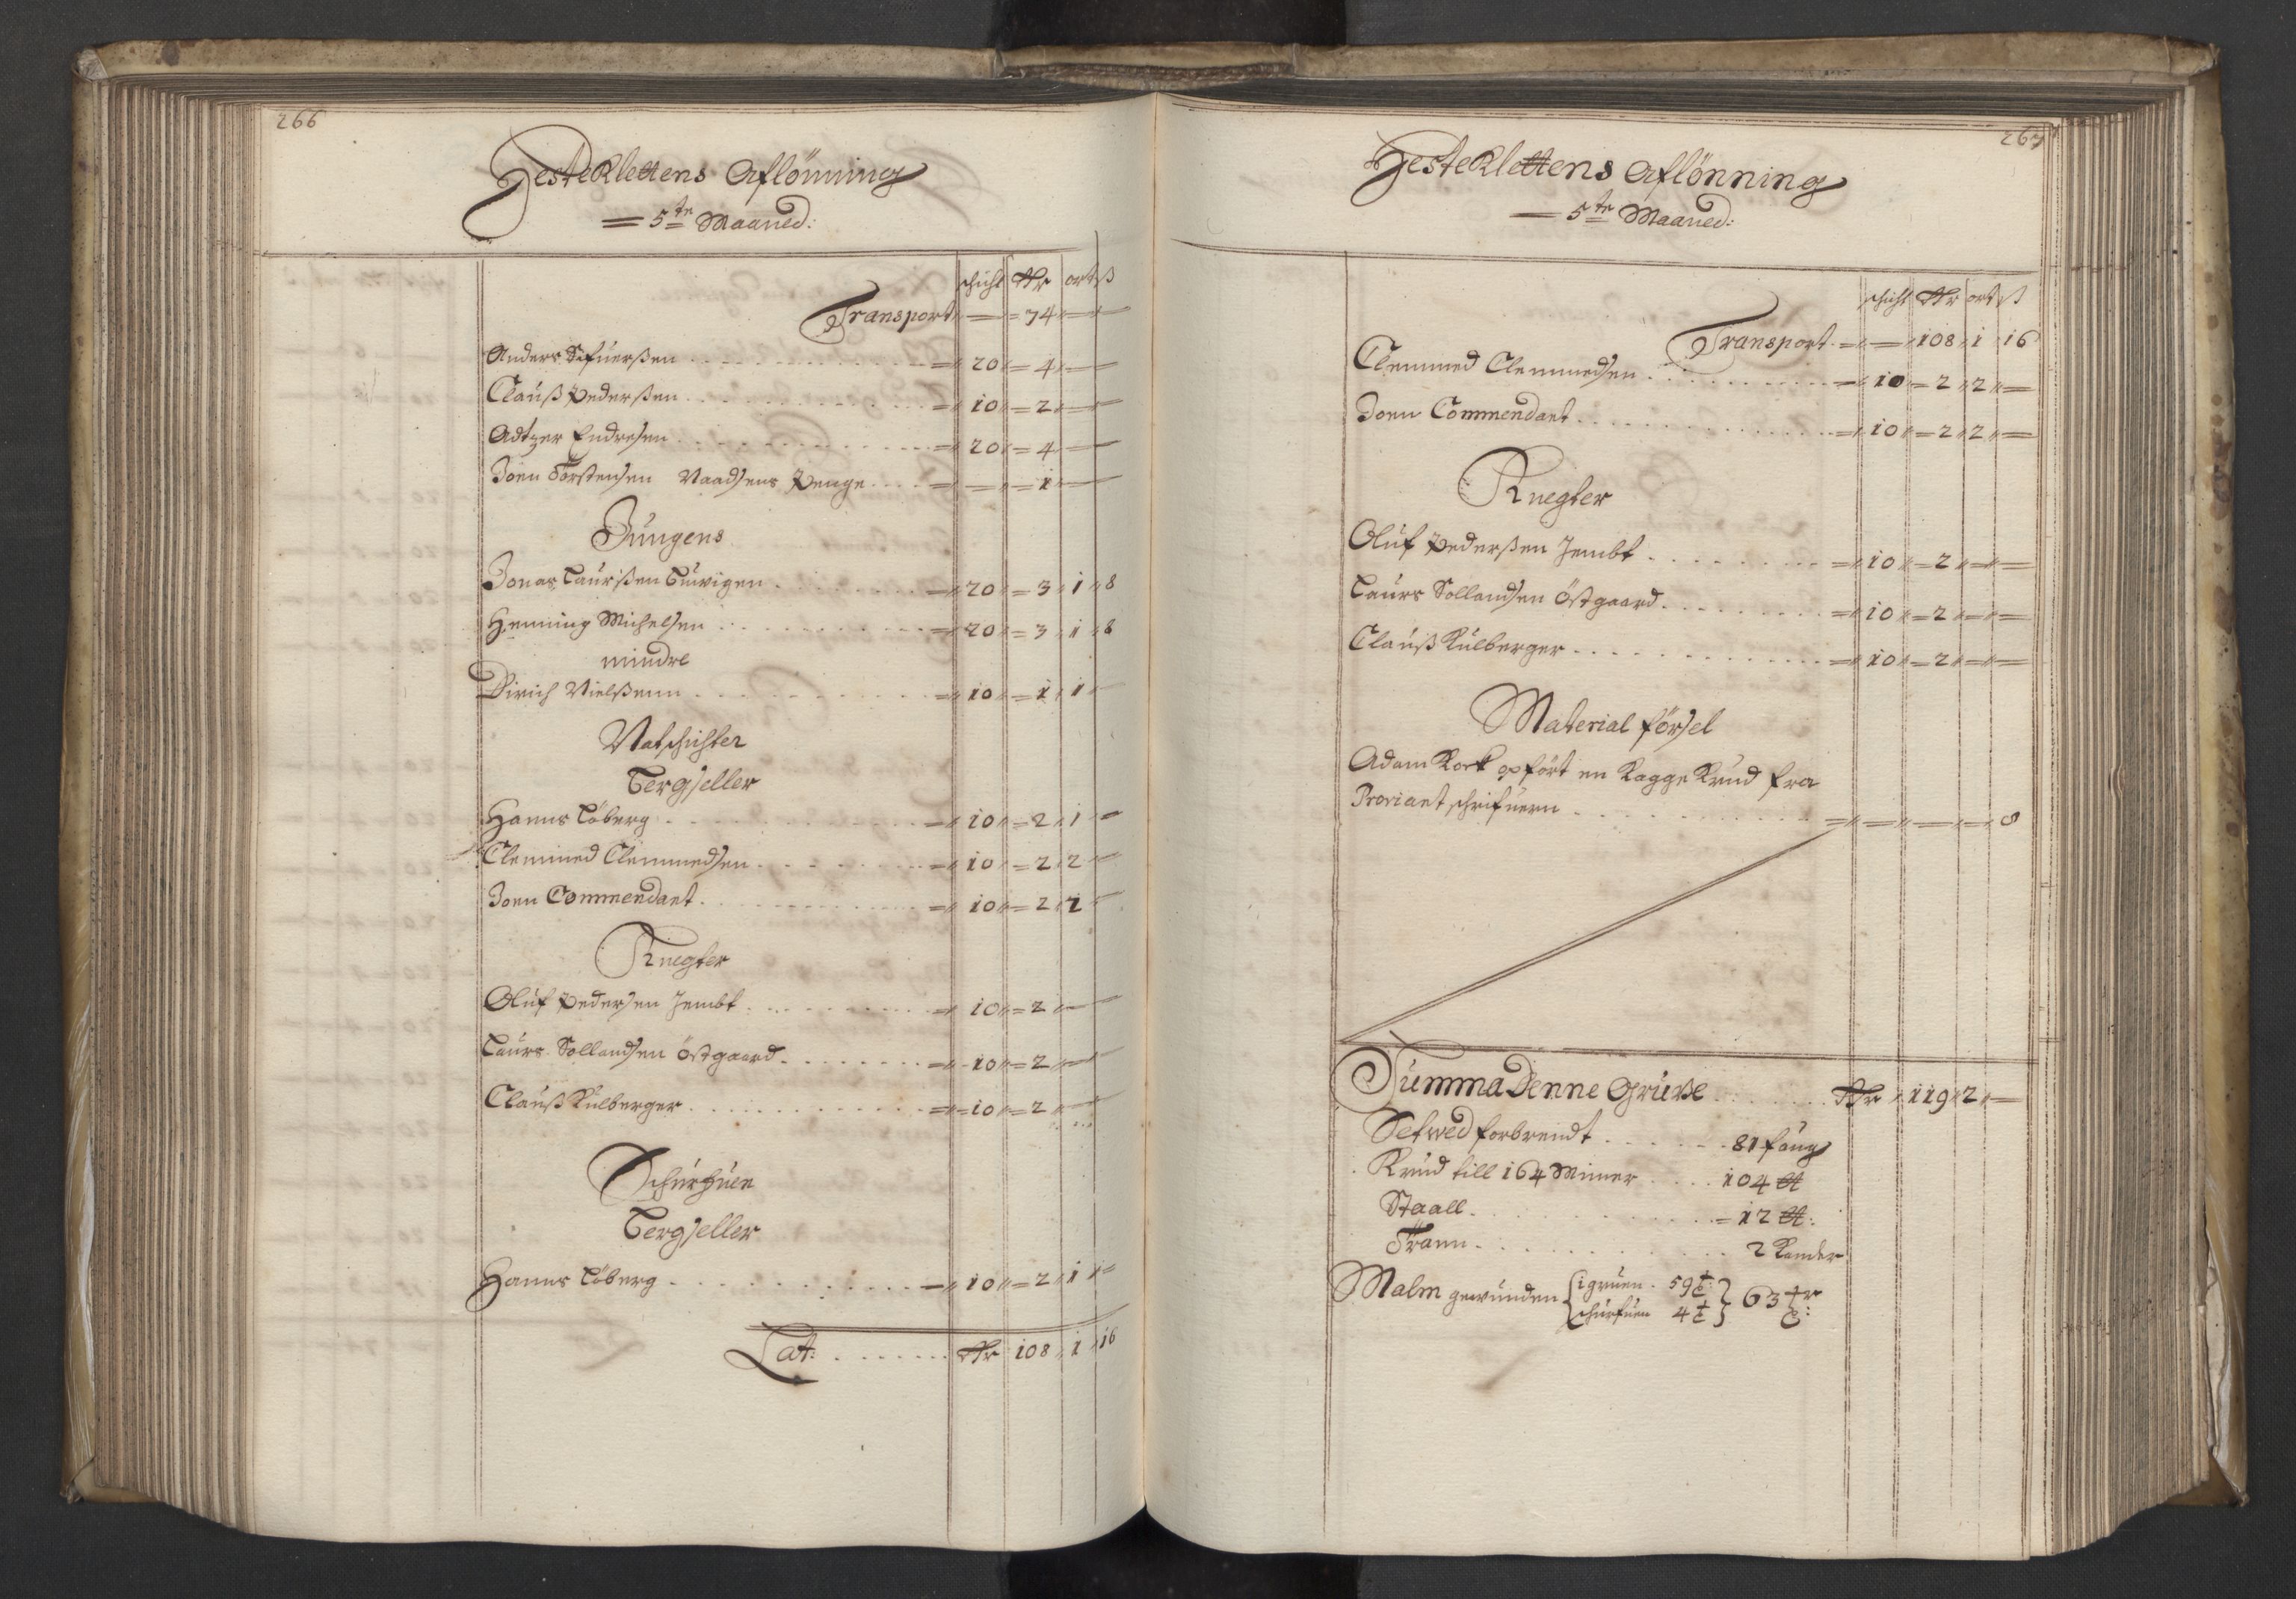 266
Hesteklettens Aflönning
5te Maaned:
schicht Rdr ort ß
Transport 74
Anders Sifuerßen 20 4
Clauß Pederßen 10 2
Adtzer Endresen 20 4
Joen Torstensen Naadsens Penge 1
Jungens
Jonas Laurßen Tuwigen 20 3 1 8
Henning Michelsen 20 3 1 8
mindre
Dirich Nielßenn 10 1 1
Natschichter
Bergseller
Hanns Löberg 10 2 1
Clemmed Clemmedsen 10 2 2
Joen Commendant 10 2 2
Knegter
Oluf Pedersen Jembt 10 2
Laurs Sollandsen Östgaard 10 2
Clauß Kulberger 10 2
Schurfuen
Bergseller
Hanns Löberg 10 2 1
Lat: Rdr 108 1 16
267
Hesteklettens Aflönning
5te Maaned:
schicht Rdr ort ß
Transport 108 1 16
Clemmed Clemmedsen 10 2 2
Joen Commendant 10 2 2
Knegter
Oluf Pederßen Jembt 10 2
Laurs Sollandsen Östgaard 10 2
Clauß Kulberger 10 2
Material försel
Adam Kock opfört en Kagge Krud fra
Proviant schrifuern 8
Summa Denne Grube Rdr 119 2
Setwed forbrendt 81 faug
Krud till 164 Miner 104 ℔
Staall 12 ℔:
Trann 2 Kander
Malm gewunden { i gruen 59 t: schurfuen 4 t } 63 tr: